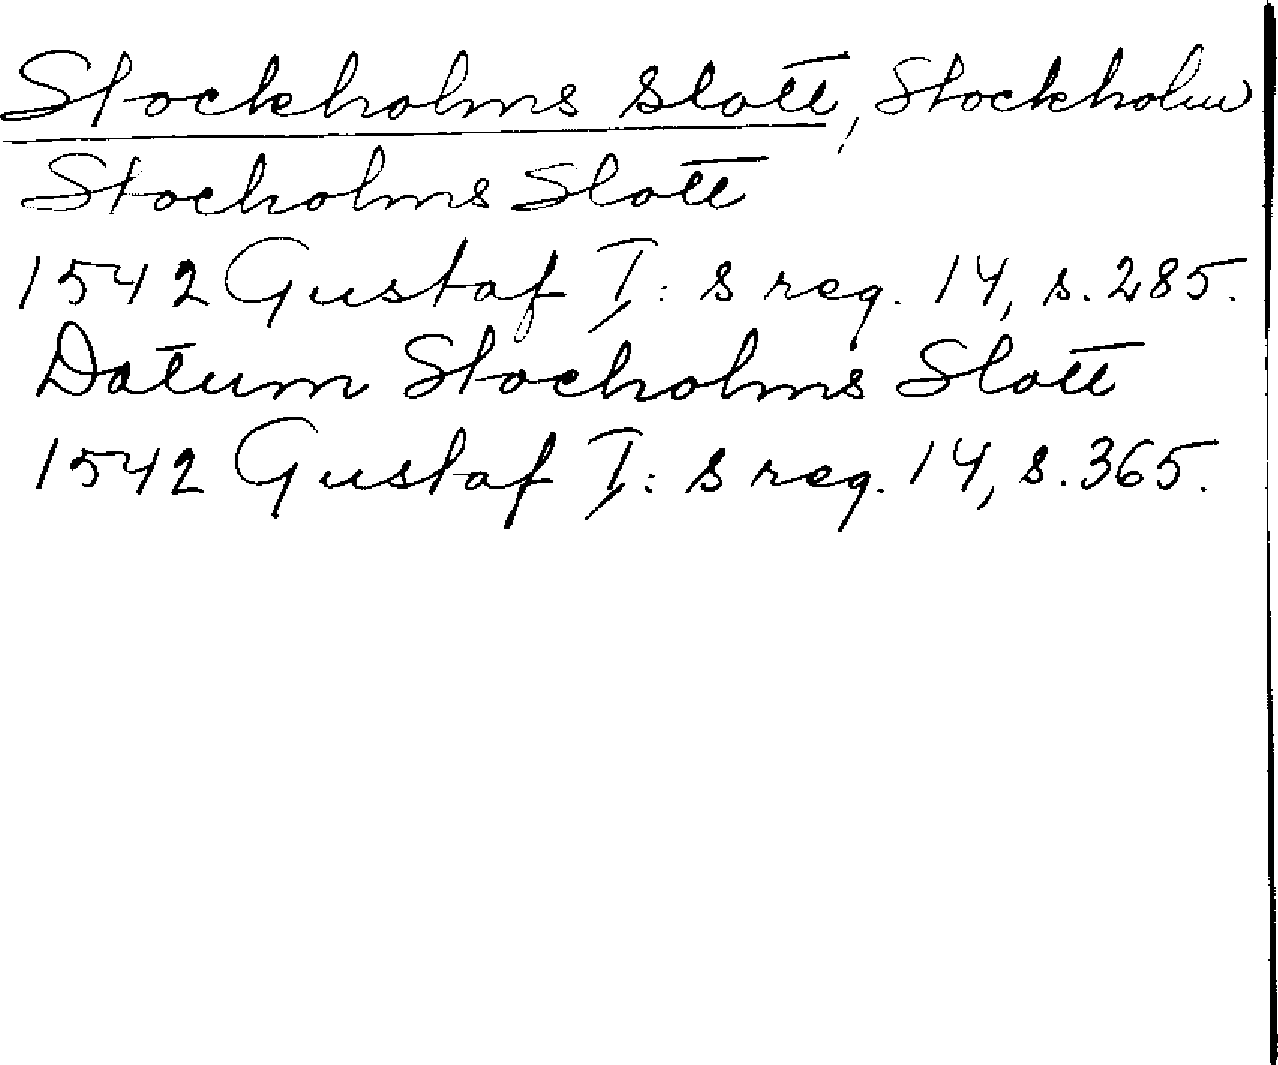 Stockholms slott, Stockholm
Stocholms Slott
1542 Gustaf I:s reg. 14, s. 285.
Datum Stocholms Slott
1542 Gustaf I:s reg. 14, s. 365.